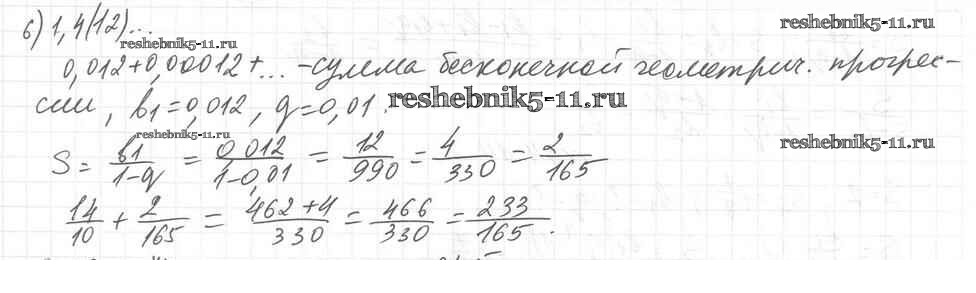 б) 1,4(12)...
reshebnik5-11.ru
reshebnik5-11.ru
0,012+0,00012+... -сумма бесконечной геометрич. прогрес-
сии, b1=0,012, q=0,01.
reshebnik5-11.ru
reshebnik5-11.ru
reshebnik5-11.ru
S = b1/1-q = 0,012/1-0,01 = 12/990 = 4/330 = 2/165
14/10 + 2/165 = 462+4/330 = 466/330 = 233/165.